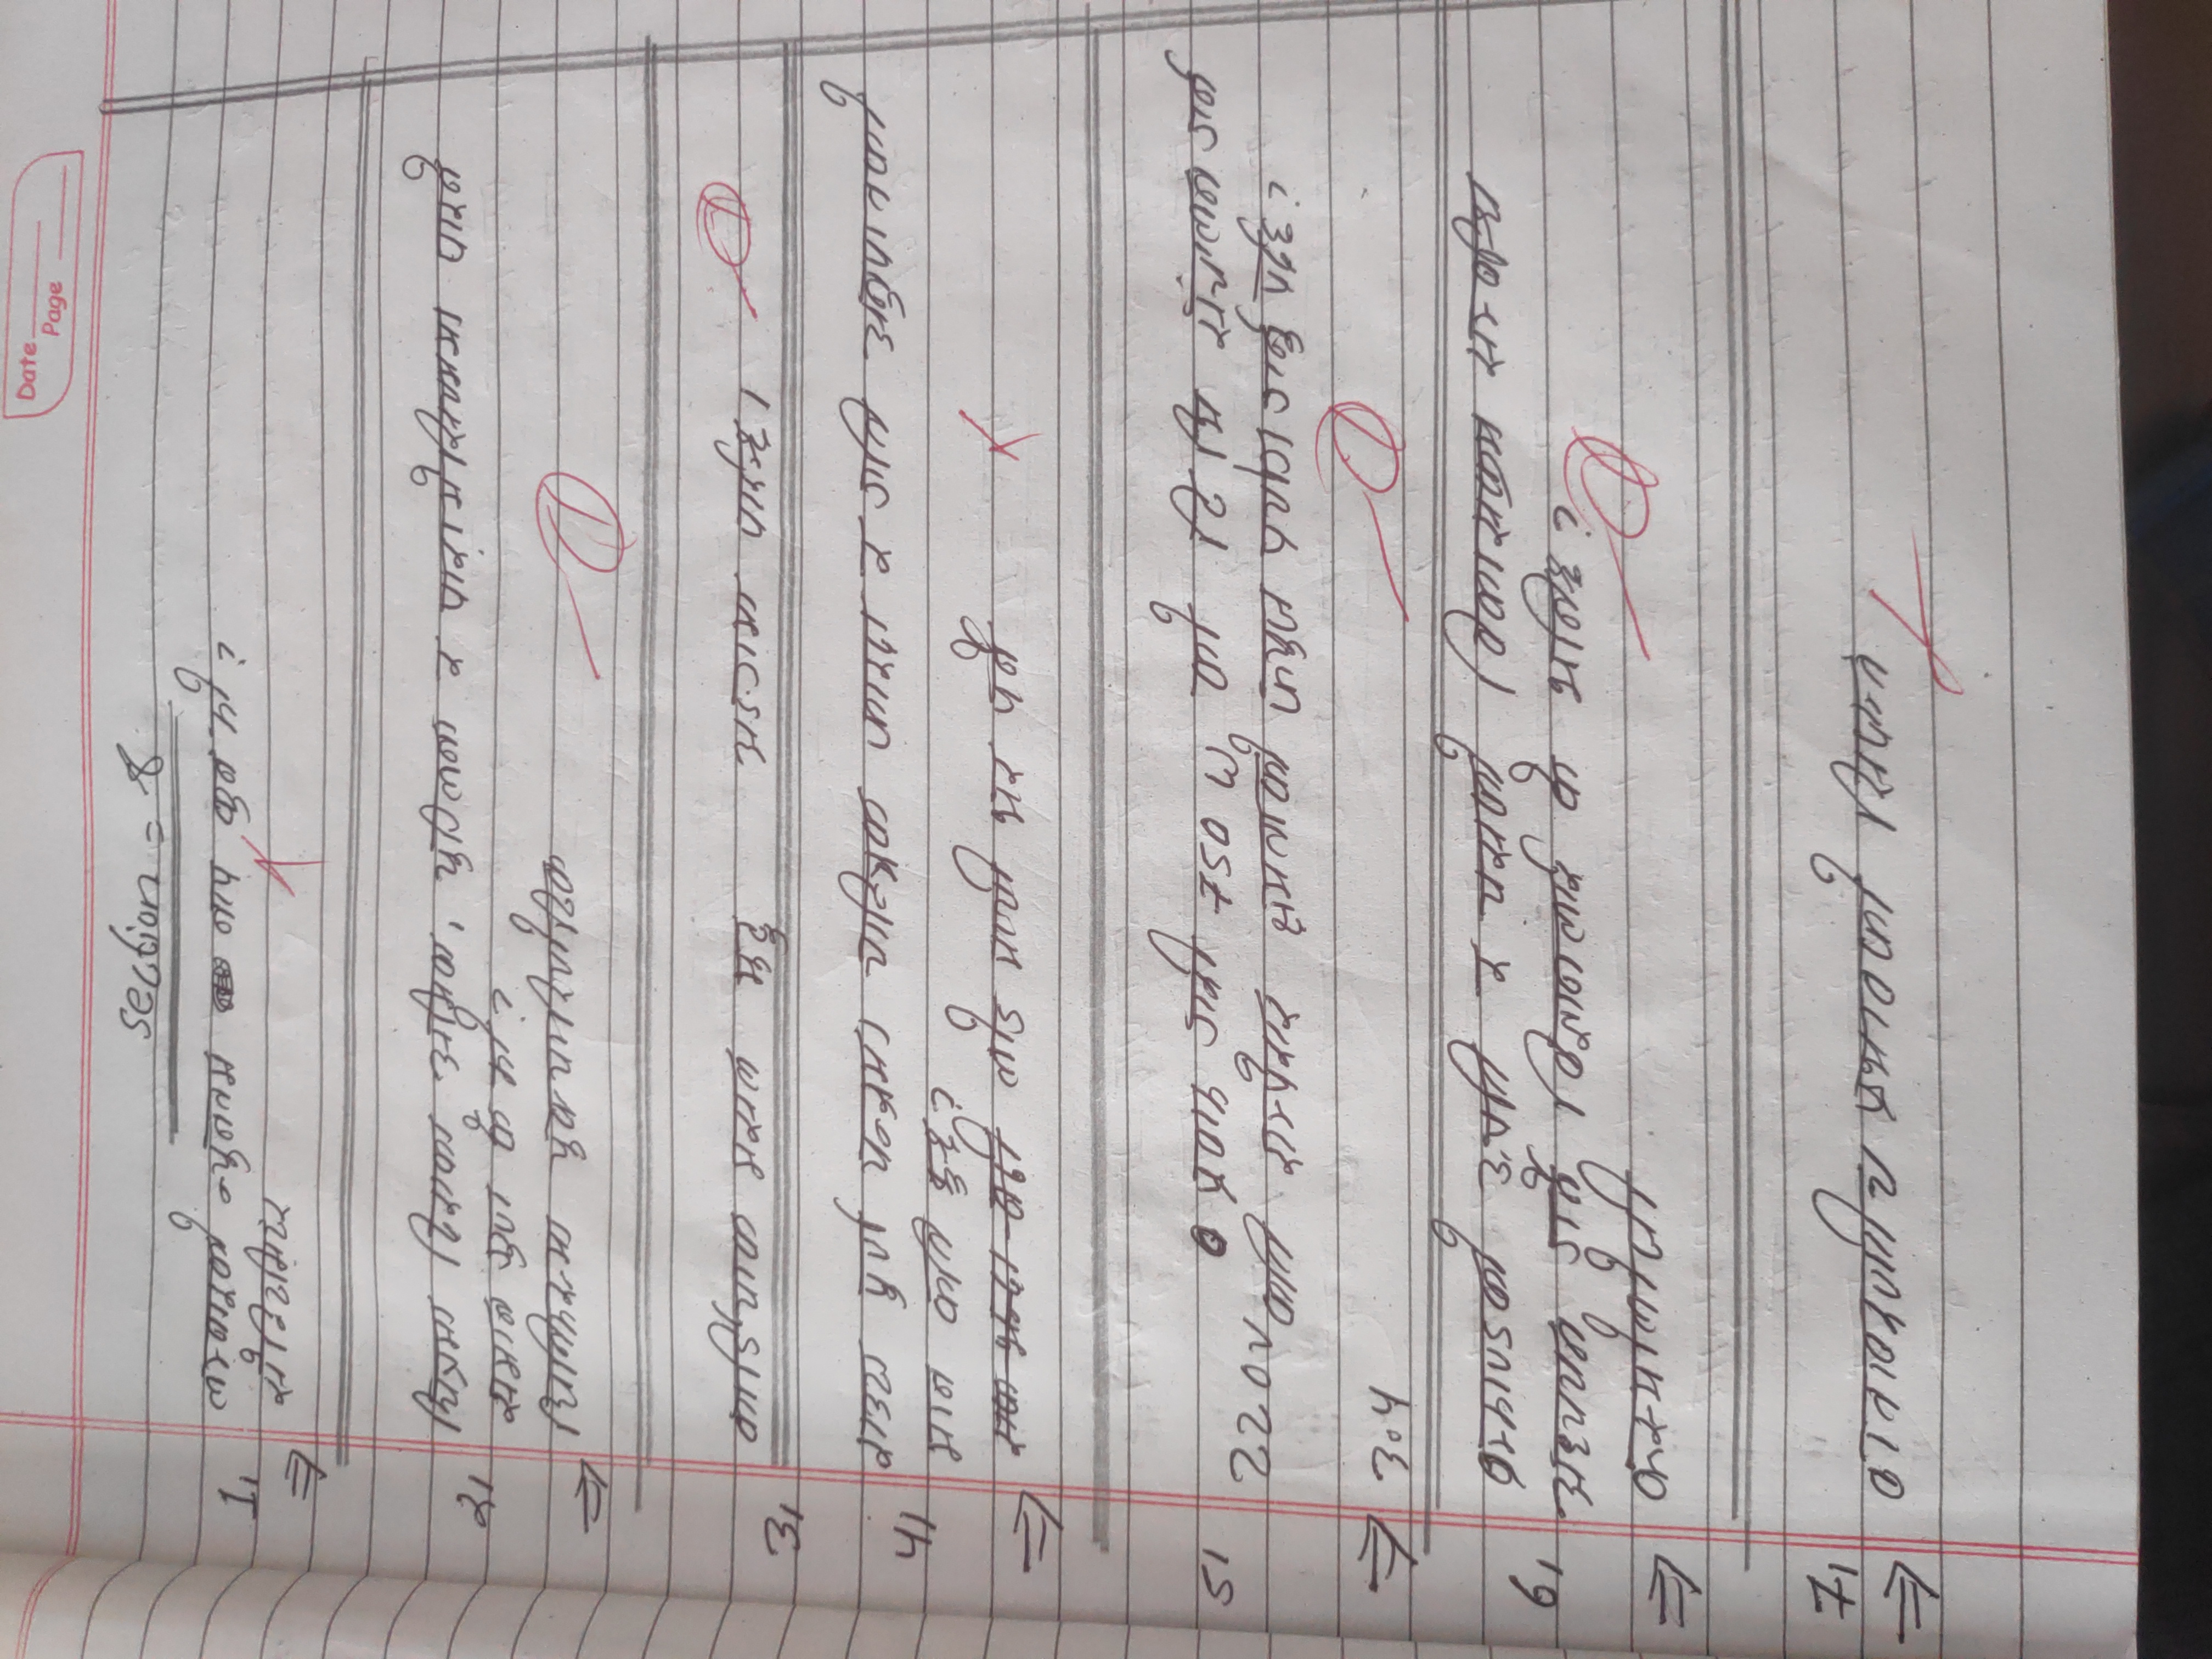 Date
Page
section = 8
1, लम्बाइको न्युनतम नाप कुन हो?
⇒ सेन्टिमिटर
2, चित्रमा दिएका अमिबा, युग्लिना र पारामेसियममा पाइने
समान गुण के हो?
⇒ युक्यारियोटिक
3, कार्डियाक मसल मुटु अङ्गमा पाईन्छ।
4, एउटा पुर्ण यन्त्रमा यान्त्रिक फाइदा र गति अनुपातको
मान कति हुन्छ?
⇒ एक भन्दा बढी लोड माथी भर पर्ने
5, प्रवाह गरी 750 W को टि भि संचालन गर्न
220V कति एम्पेएर क्षमताको फ्युज प्रयोग गर्नु पर्दछ?
⇒ 3.4
6, ब्रह्माण्डको उत्पति र यसको विकासक्रम सम्बन्धि
अध्ययन गर्ने विज्ञानलाई के भनिन्छ?
⇒ कस्मोलोजी
7,
⇒ वातावरणीय प्रभावको सिद्धान्त